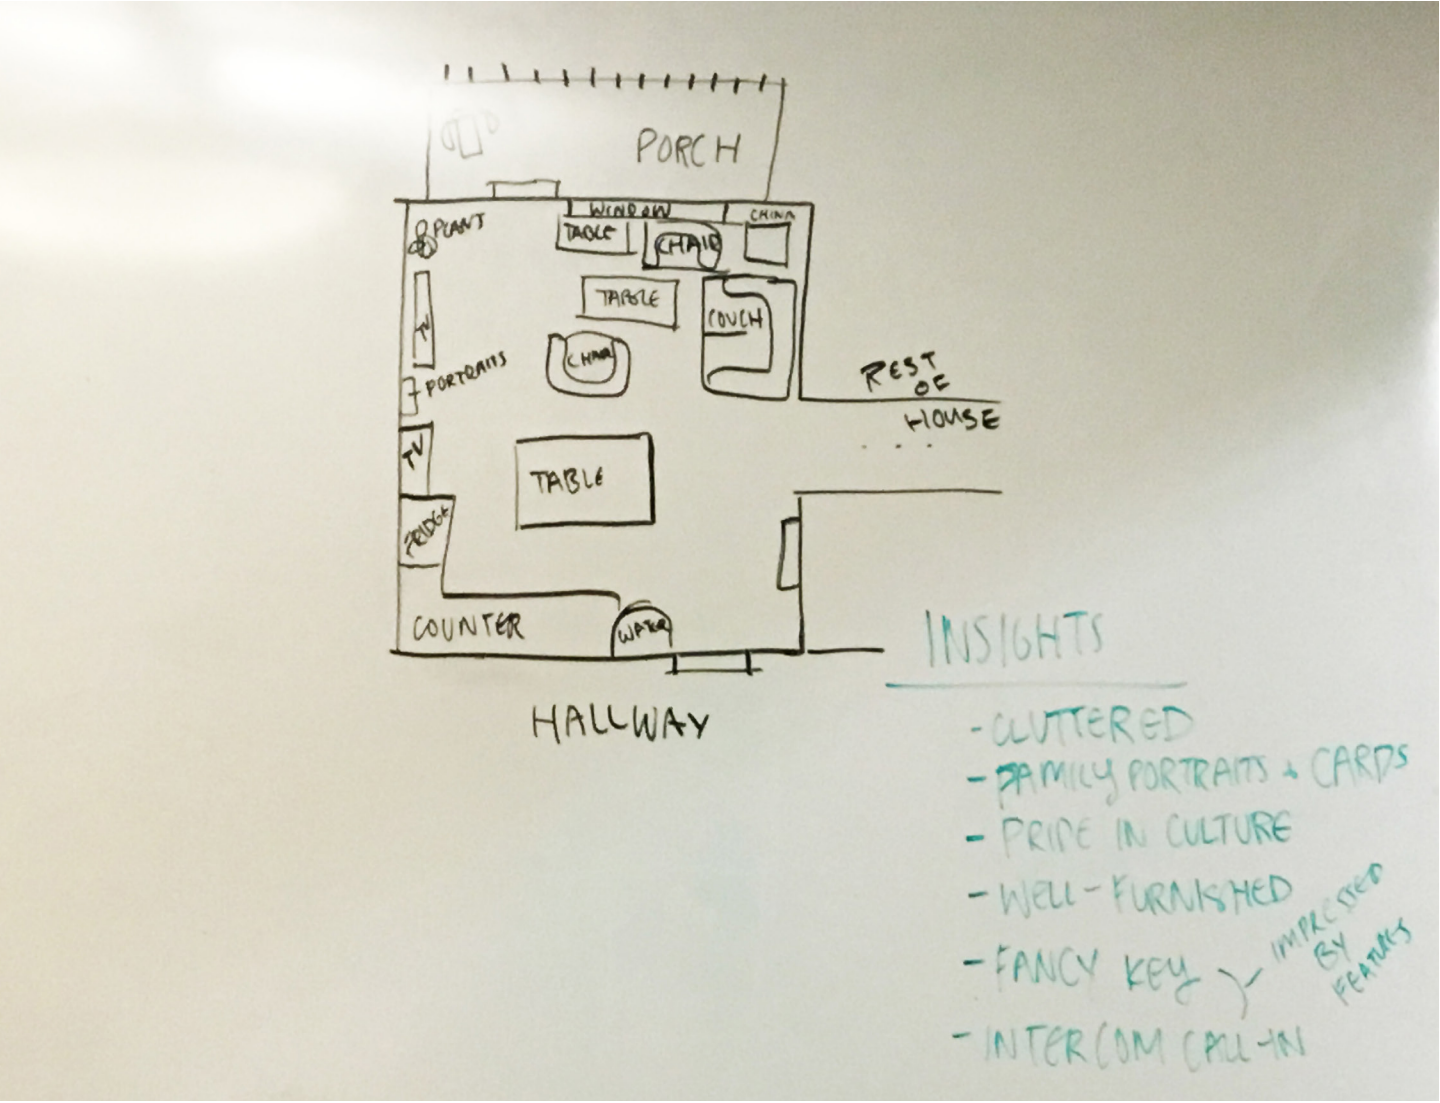 PORCH
WINDOW
CHINA
PLANT
TABLE
CHAIR
TABLE
COUCH
TV
CHAIR
PORTRAITS
REST
OF
HOUSE
...
TV
TABLE
FRIDGE
COUNTER
WATER
HALLWAY
INSIGHTS
- CLUTTERED
- FAMILY PORTRAITS + CARDS
- PRIDE IN CULTURE
- WELL-FURNISHED
- FANCY KEY
- INTERCOM CALL-IN
IMPRESSED
BY
FEATURES